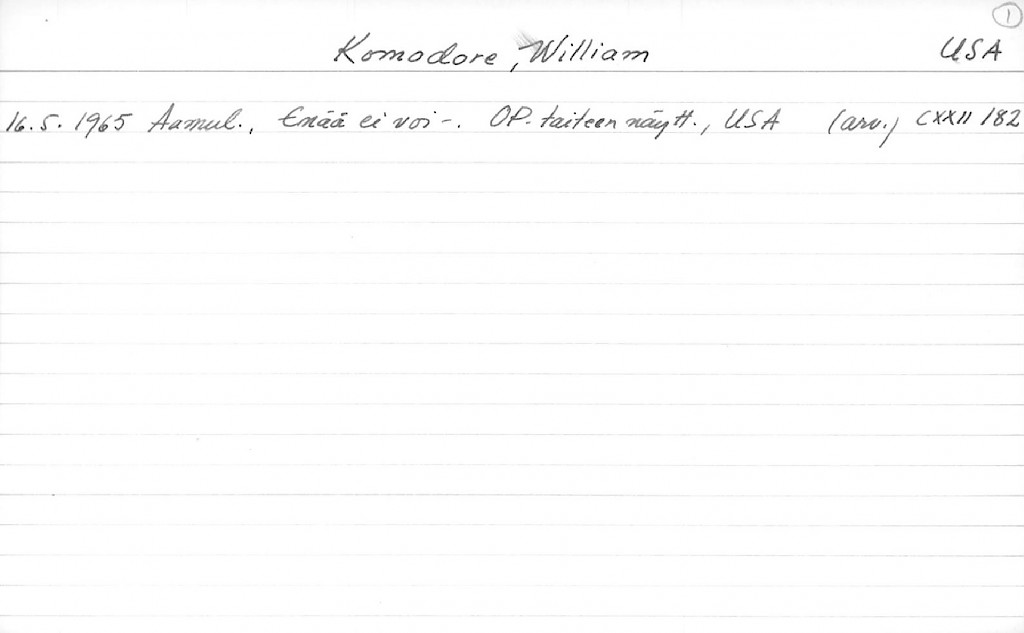 1
Komodore, William USA
16.5.1965 Aamul., Enää ei voi -. OP-taiteen näytt., USA (arv.) CXXII 182